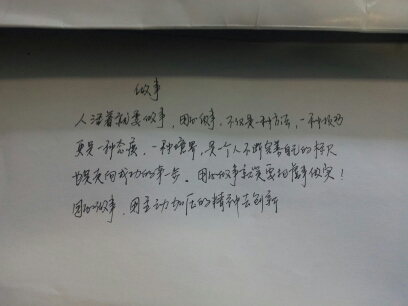 做事
人活着就要做事,用心做事,不仅是一种方法,一种技巧
更是一种态度,一种境界,是一个人不断完善自己的标尺
也是走向成功的第一步。用心做事就是要把事做实!
用心做事,用主动加压的精神去创新